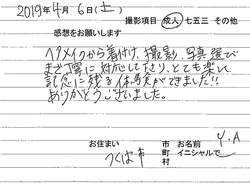 2019年4月6日(土)
撮影項目 成人 七五三 その他
感想をお願いします
ヘアメイクから着付け、撮影、写真選び
まで丁寧に対応して下さり、とても楽しく
記念に残る体験ができました!!
ありがとうございました。
お住まい つくば 市町村
お名前 イニシャルで Y.A